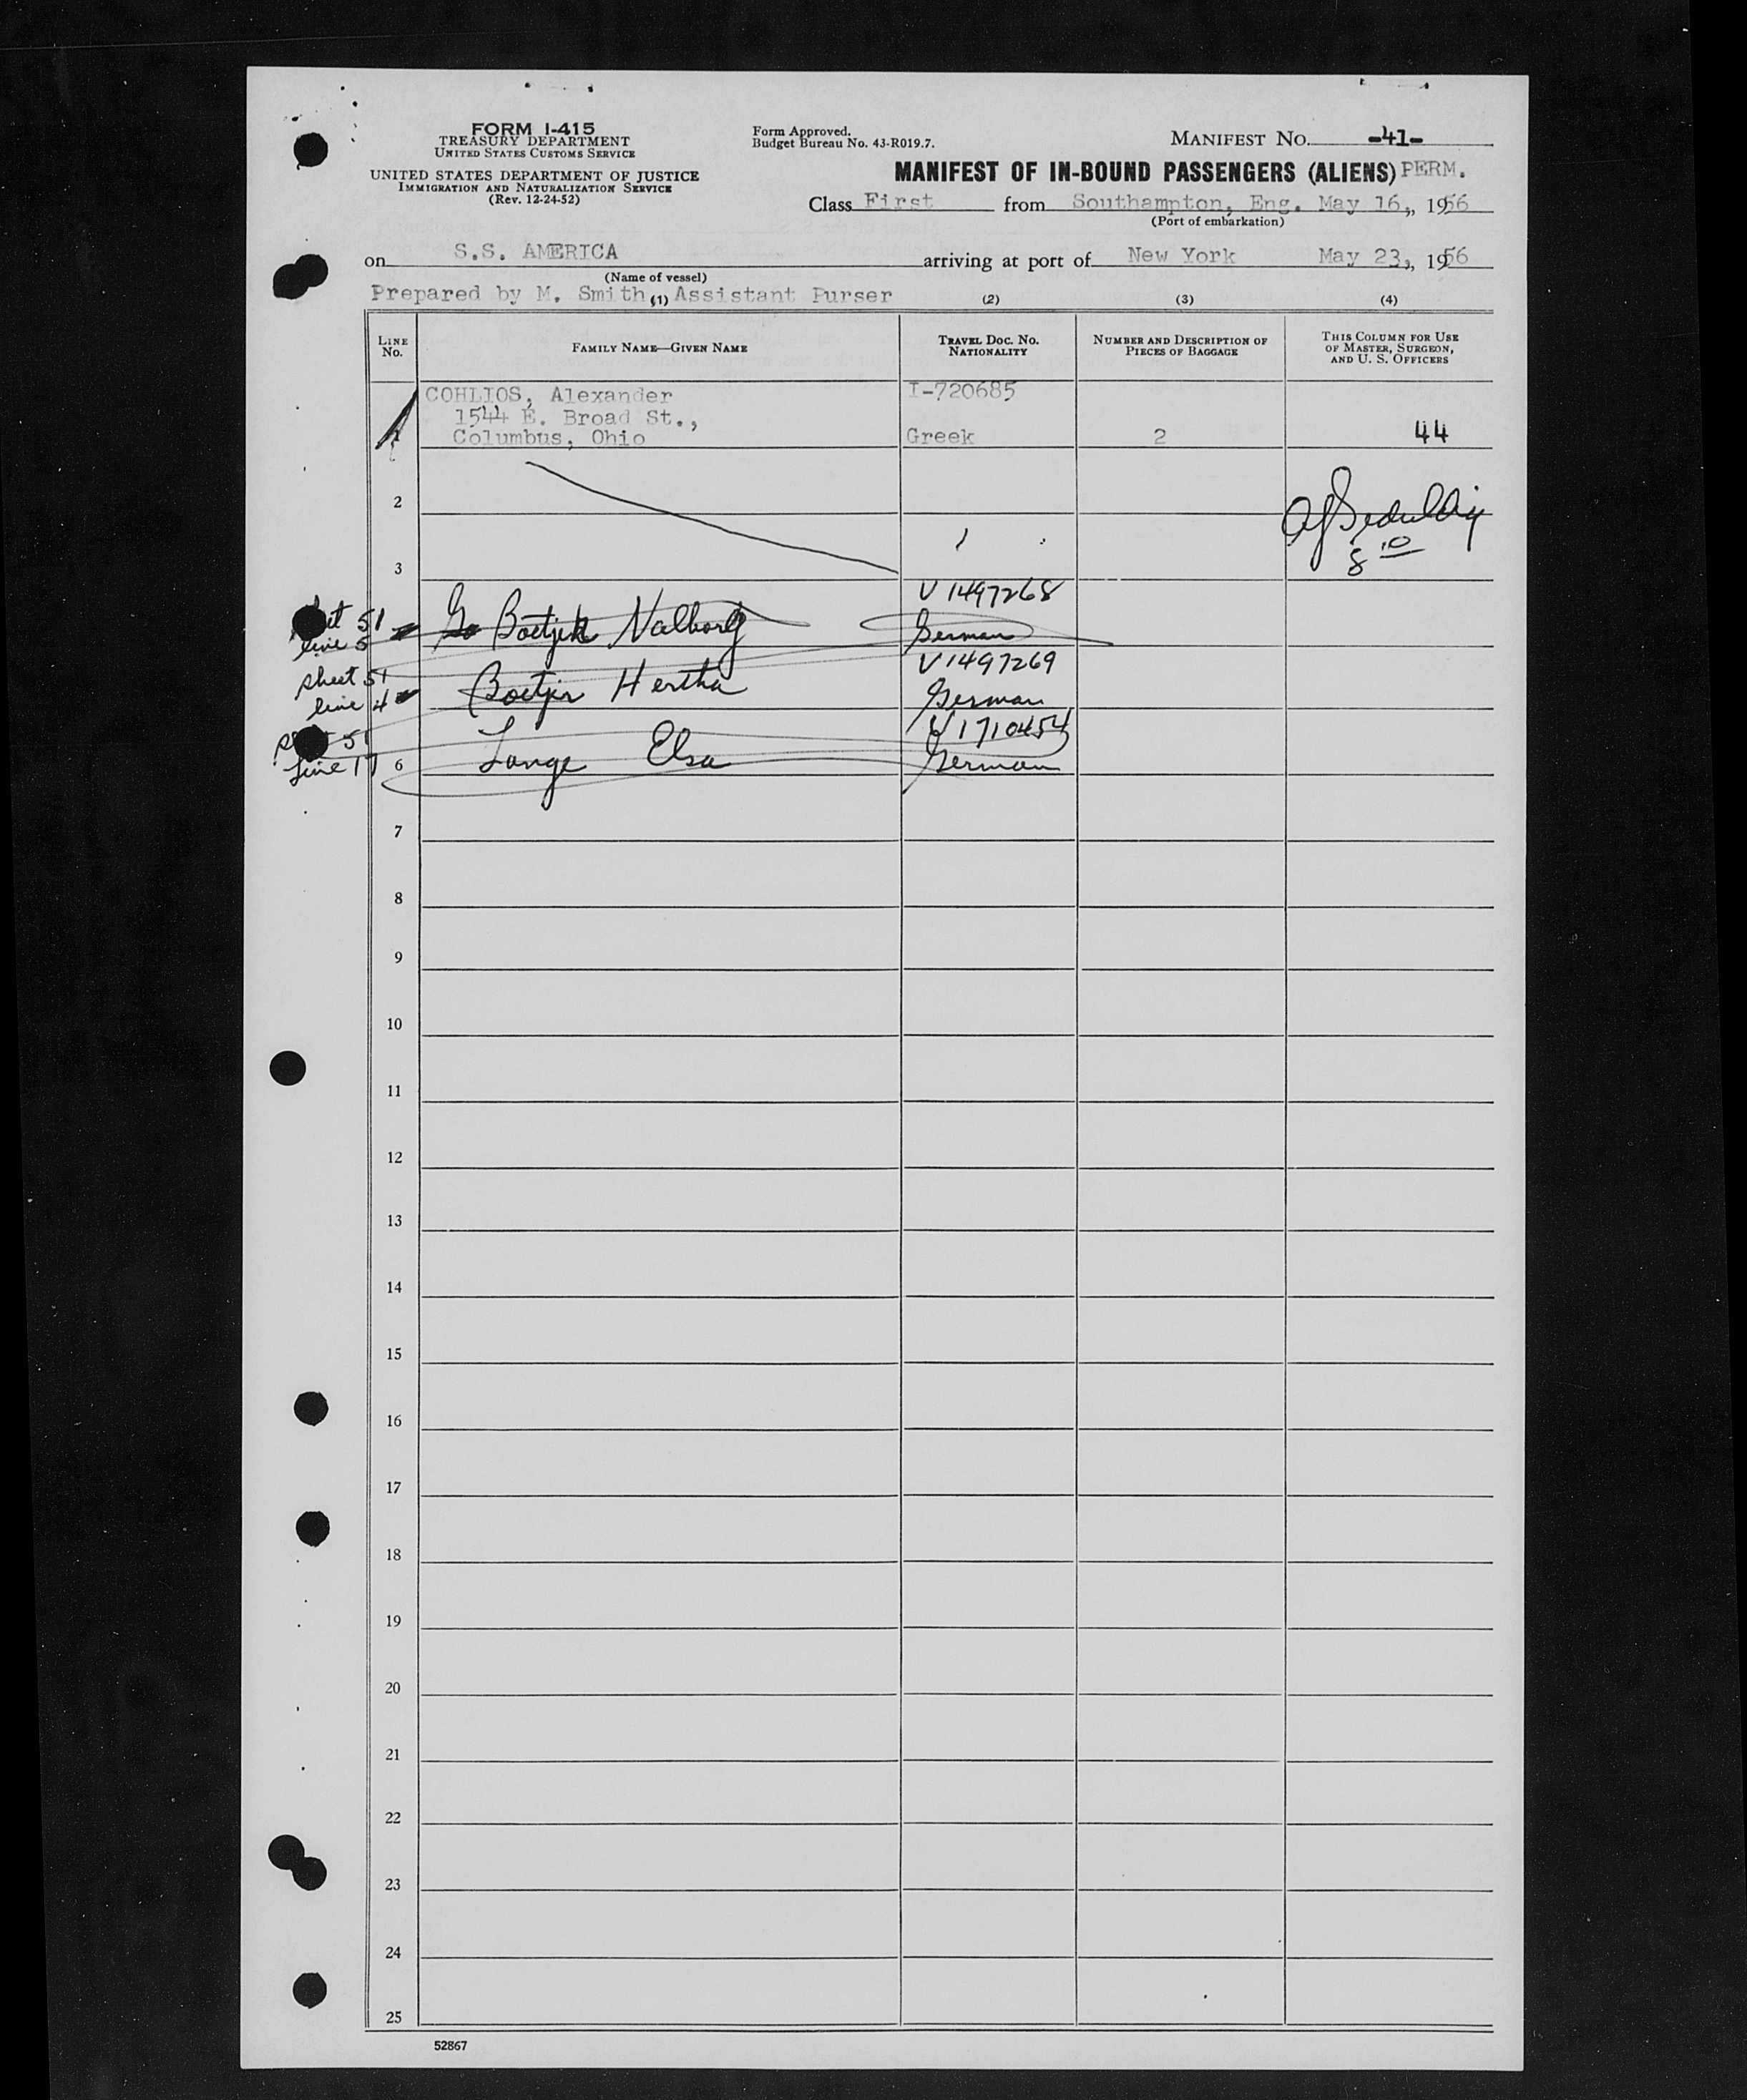 FORM I-415
TREASURY DEPARTMENT
UNITED STATES CUSTOMS SERVICE
UNITED STATES DEPARTMENT OF JUSTICE
IMMIGRATION AND NATURALIZATION SERVICE
(Rev. 12-24-52)
Form Approved.
Budget Bureau No. 43-R019.7.
MANIFEST NO. -41-
MANIFEST OF IN-BOUND PASSENGERS (ALIENS) PERM.
Class First from Southampton, Eng. May 16, 1956
(Port of embarkation)
on S.S. AMERICA arriving at port of New York May 23, 1956
(Name of vessel)
Prepared by M. Smith, Assistant Purser
(1) (2) (3) (4)
LINE NO.
FAMILY NAME—GIVEN NAME
TRAVEL DOC. NO.
NATIONALITY
NUMBER AND DESCRIPTION OF
PIECES OF BAGGAGE
THIS COLUMN FOR USE
OF MASTER, SURGEON,
AND U. S. OFFICERS
COHLIOS, Alexander I-720685
1544 E. Broad St.,
Columbus, Ohio Greek 2 44
2
3
8 10
V 1497268
51
line 5
German
V 1497269
sheet 51
line 4
Hertha
German
51
line 17
6 Lange Elsa
V 1710454
German
7
8
9
10
11
12
13
14
15
16
17
18
19
20
21
22
23
24
25
52867